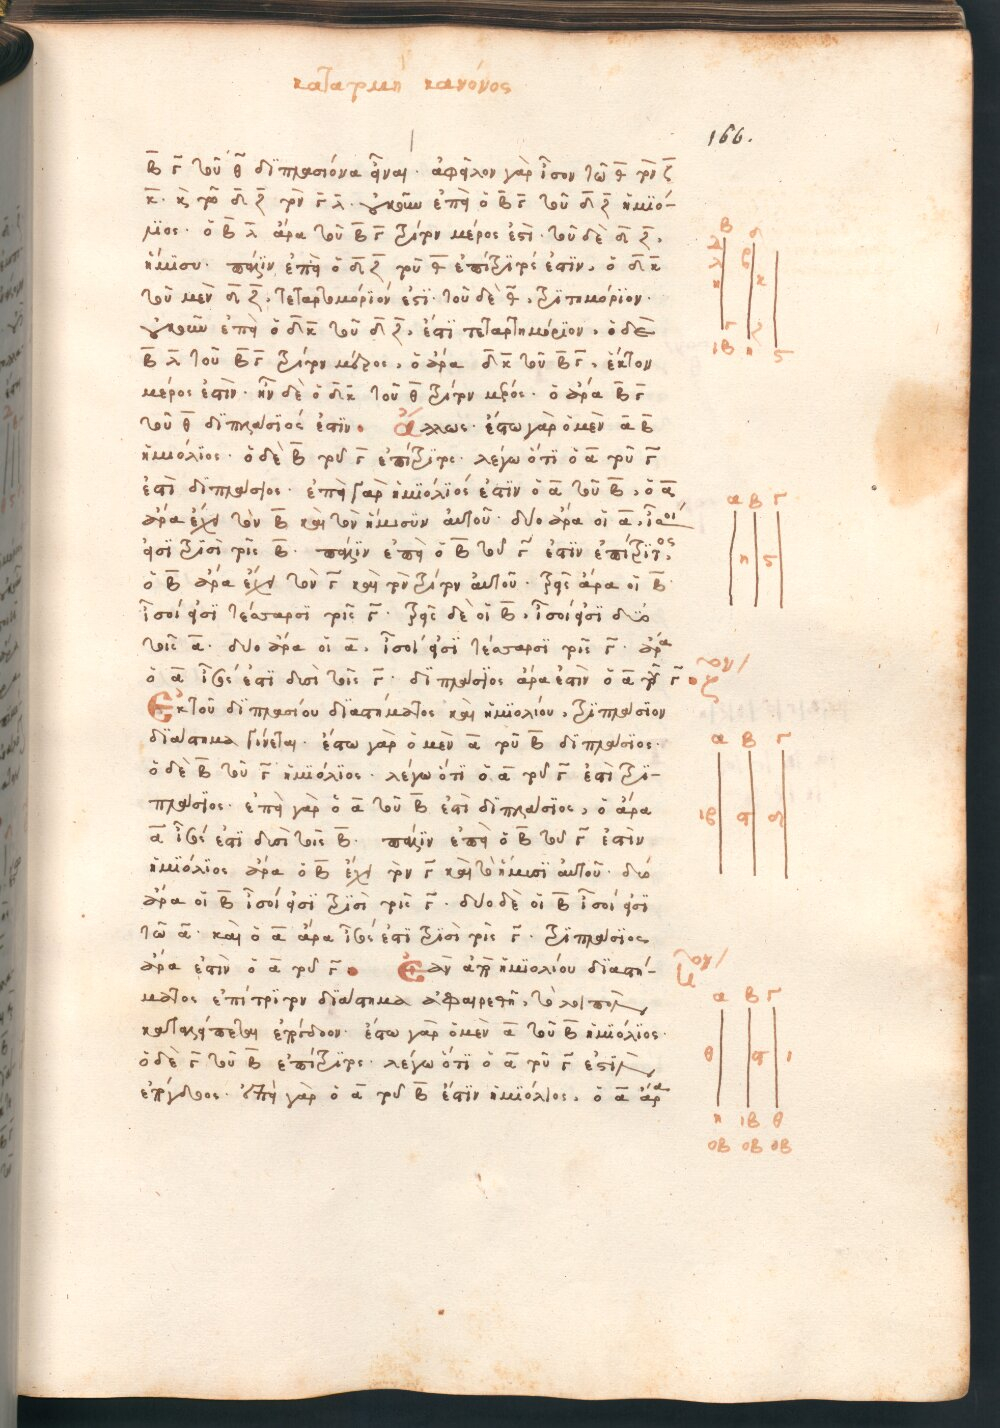 κατατομὴ κανόνος
166.
β̅ γ̅ τοῦ θ̅ διπλασίονα εἶναι· ἀφῆλον γὰρ ἴσον τῶ θ̅ τὸν ζ̅
κ̅· καὶ τῶ δ̅ι ζ̅ τὸν γ̅ λ̅· οὐκοῦν ἐπεὶ ὁ β̅ γ̅ τοῦ δ̅ι ζ̅ ἡμιό-
λιος· ὁ β̅ λ̅ ἄρα τοῦ β̅ γ̅ τρίτον μέρος ἐστὶ· τοῦ δὲ δ̅ι ζ̅,
ἥμισυ· πάλιν ἐπεὶ ὁ δ̅ι ζ̅ τοῦ θ̅ ἐπίτριτός ἐστιν, ὁ δ̅ κ̅
τοῦ μὲν δ̅ι ζ̅, τεταρτημόριόν ἐστι· τοῦ δὲ θ̅, τριτημόριον·
οὐκοῦν ἐπεὶ ὁ δ̅ κ̅ τοῦ δ̅ι ζ̅, ἐστὶ τεταρτημόριον, ὁ δὲ
β̅ λ̅ τοῦ β̅ γ̅ τρίτον μέρος, ὁ ἄρα δ̅ κ̅ τοῦ β̅ γ̅, ἕκτον
μέρος ἐστὶν· ἦν δὲ ὁ δ̅ κ̅ τοῦ θ̅ τρίτον μέρος· ὁ ἄρα β̅ γ̅
τοῦ θ̅ διπλασιός ἐστιν. ἄλλως· ἔστω γὰρ ὁ μὲν α̅ β̅
ἡμιόλιος· ὁ δὲ β̅ τοῦ γ̅ ἐπίτριτος· λέγω ὅτι ὁ α̅ τοῦ γ̅
ἐστὶ διπλάσιος· ἐπεὶ γὰρ ἡμιόλιός ἐστιν ὁ α̅ τοῦ β̅, ὁ α̅
ἄρα ἔχει τὸν β̅ καὶ τὸν ἥμισυν αὐτοῦ· δύο ἄρα οἱ α̅, ἴσοι
εἰσὶ τρισὶ τοῖς β̅· πάλιν ἐπεὶ ὁ β̅ τοῦ γ̅ ἐστὶν ἐπίτριτος
ὁ β̅ ἄρα ἔχει τὸν γ̅ καὶ τὸν τρίτον αὐτοῦ· τρεῖς ἄρα οἱ β̅
ἴσοι εἰσὶ τέσσαρσι τοῖς γ̅· τρεῖς δὲ οἱ β̅, ἴσοι εἰσὶ δυσὶ
τοῖς α̅· δύο ἄρα οἱ α̅, ἴσοι εἰσὶ τέσσαρσι τοῖς γ̅· ἄρα
ὁ α̅ ἴσός ἐστι δυσὶ τοῖς γ̅· διπλάσιος ἄρα ἐστὶν ὁ α̅ τοῦ γ̅.
Ἐκ τοῦ διπλασίου διαστήματος καὶ ἡμιολίου, τριπλάσιον
διάστημα γίνεται· ἔστω γὰρ ὁ μὲν α̅ τοῦ β̅ διπλάσιος·
ὁ δὲ β̅ τοῦ γ̅ ἡμιόλιος· λέγω ὅτι ὁ α̅ τοῦ γ̅ ἐστὶ τρι-
πλάσιος· ἐπεὶ γὰρ ὁ α̅ τοῦ β̅ ἐστὶ διπλάσιος, ὁ ἄρα
α̅ ἴσός ἐστι δυσὶ τοῖς β̅· πάλιν ἐπεὶ ὁ β̅ τοῦ γ̅ ἐστὶν
ἡμιόλιος ἄρα ὁ β̅ ἔχει τὸν γ̅ καὶ τὸ ἥμισι αὐτοῦ· δύο
ἄρα οἱ β̅ ἴσοι εἰσὶ τρισὶ τοῖς γ̅· δύο δὲ οἱ β̅ ἴσοι εἰσὶ
τῶ α̅· καὶ ὁ α̅ ἄρα ἴσός ἐστι τρισὶ τοῖς γ̅· τριπλάσιος
ἄρα ἐστὶν ὁ α̅ τοῦ γ̅. Ἐὰν ἀπὸ ἡμιολίου διαστή-
ματος ἐπίτριτον διάστημα ἀφαιρεθῆ, τὸ λοιπὸν
καταλείπεται ἐπόγδοον· ἔστω γὰρ ὁ μὲν α̅ τοῦ β̅ ἡμιόλιος·
ὁ δὲ γ̅ τοῦ β̅ ἐπίτριτος· λέγω ὅτι ὁ α̅ τοῦ γ̅ ἐστὶν
ἐπόγδοος· ἐπεὶ γὰρ ὁ α̅ τοῦ β̅ ἐστὶν ἡμιόλιος, ὁ α̅ ἄρα
β δ
λ θ
κ κ
γ ζ
ιβ η ϛ
α β γ
η ϛ
ζον
α β γ
ιβ ϛ δ
ηον
α β γ
θ ϛ
η ιβ θ
οβ οβ οβ